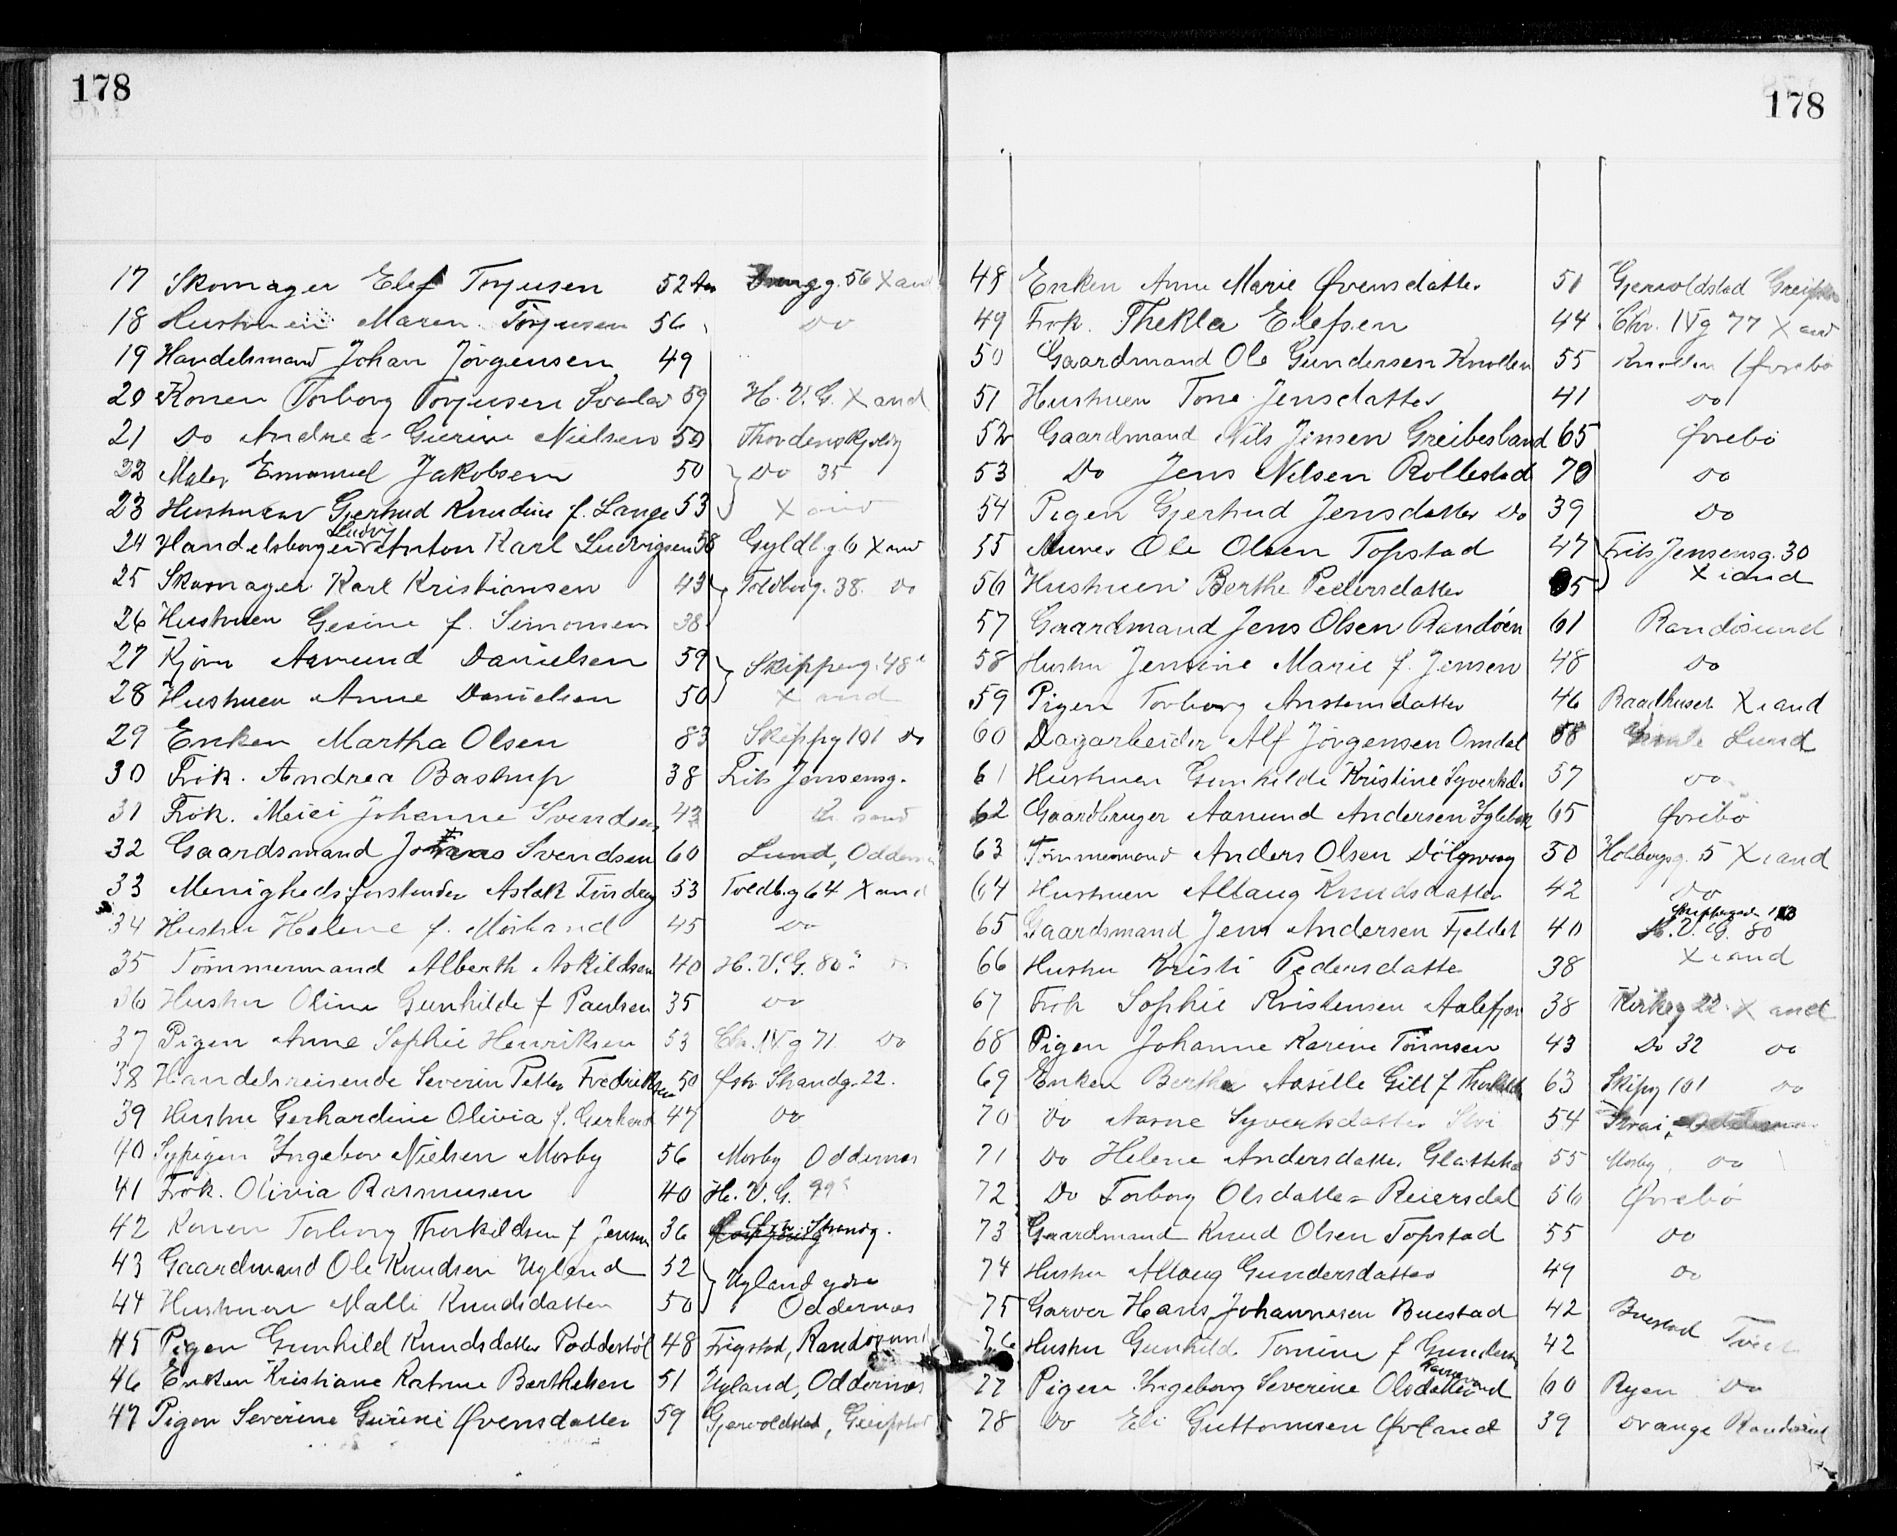 178
17 Skomager Elef Torjusen 52 Aar g. 56 X and
18 Hustruen Maren Torjusen 56 Do
19 Handelsmand Johan Jörgensen 49
20 Konen Torborg Torjusen 59 H. V. G. X and
21 Do Andrea Gurine Nielsen 50
22 Maler Emanuel Jakobsen 50 Do 35
23 Hustruen Gjertrud Knudine f. Lange 53 X and
24 Handelsborger Ludvig Anton Karl Ludvigsen 58 Gyldl. g 6 X and
25 Skomager Karl Kristiansen 43 Toldbg. 38. Do
26 Hustruen Gesine f. Simonsen 38
27 Aamund Danielsen 59 Skipperg. 48
28 Hustruen Anne Danielsen 50 X and
29 Enken Martha Olsen 83 Skippg 101 Do
30 Frök. Andrea Bastrup 38 Frits Jensensg.
31 Frök. Meiei Johanne Svendsen 43
32 Gaardsmand Svendsen 60 Lund, Oddernes
33 Menighedsforstander Aslak 53 Toldbg 64 X and
34 Hustru Helene f. Mosland 45 Do
35 Tömmermand Alberth Askildsen 40 H. V. G. 80
36 Hustru Oline Gunhilde f Paulsen 35 Do
37 Pigen Anne Sophie Henriksen 53 Chr. IV g 71 Do
38 Handelsreisende Severin Petter Fredriksen 50 Östr. Strandg. 22.
39 Hustru Gerhardine Olivia f. Gerhard 47 Do
40 Sypigen Ingebor Nielsen Mosby 56 Mosby Oddernes
41 Frök. Olivia Rasmusen 40 H. V. G. 99
42 Konen Torborg Thorkildsen f Jensen 36 Östr. Strandg.
43 Gaardmand Ole Knudsen Ugland 52 Ugland ydre
44 Hustruen Malli Knudsdatter 50 Oddernes
45 Pigen Gunhild Knudsdatter Poddestöl 48 Frigstad, Randösund
46 Enken Kristiane Katrine Barthelsen 51 Ugland, Oddernes
47 Pigen Severine Gurine Övensdatter 59 Gjervoldstad, Greipstad
178
48 Enken Anne Marie Övensdatter 51 Gjervoldstad Greipstad
49 Frök. Thekla Elefsen 44 Chr. IV g 77 X and
50 Gaardmand Ole Gundersen Knollen 55 Knollen Övrebö
51 Hustruen Tone Jensdatter 41 Do
52 Gaardmand Nils Jensen Greibesland 65 Övrebö
53 Do Jens Nilsen Rollestad 70 Do
54 Pigen Gjertrud Jensdatter Do 39 Do
55 Murer Ole Olsen Topstad 47 Frits Jensensg. 30
56 Hustruen Berthe Pedersdatter 35 X iand
57 Gaardmand Jens Olsen Randöen 61 Randösund
58 Hustru Jensine Marie f. Jensen 48 Do
59 Pigen Torborg Anstensdatter 46 Raadhuset X iand
60 Dagarbeider Alf Jörgensen Omdal 58 Lund
61 Hustruen Gunhilde Kristine Syvertsd. 57 Do
62 Gaardbruger Aanund Andersen 65 Övrebö
63 Tömmermand Anders Olsen 50 Holbergsg. 5 X iand
64 Hustruen Allaug Knudsdatter 42 Do
65 Gaardsmand Jens Andersen Fjeldet 40 H. V. G. 80
66 Hustru Kristi Pedersdatter 38 X iand
67 Frök Sophie Kristensen Aalefjær 38 Kirkeg 22 X and
68 Pigen Johanne Karine Tönnsen 43 Do 32 Do
69 Enken Berthe Aasille Gill f Thorkildsen 63 Skipg 101 Do
70 Do Aasne Syvertsdatter 54
71 Do Helene Andersdatter 55 Mosby Do
72 Do Torborg Olsdatter Reiersdal 56 Övrebö
73 Gaardmand Knud Olsen Topstad 55 Do
74 Hustru Allaug Gundersdatter 49 Do
75 Garver Hans Johannesen Buestad 42 Buestad Tveit
76 Hustru Gunhild Tomine f Gundersen 42
77 Pigen Ingeborg Severine Olsdatter 60 Ryen Do
78 Do Eli Guttormsen Övland 39 Drange Randösund